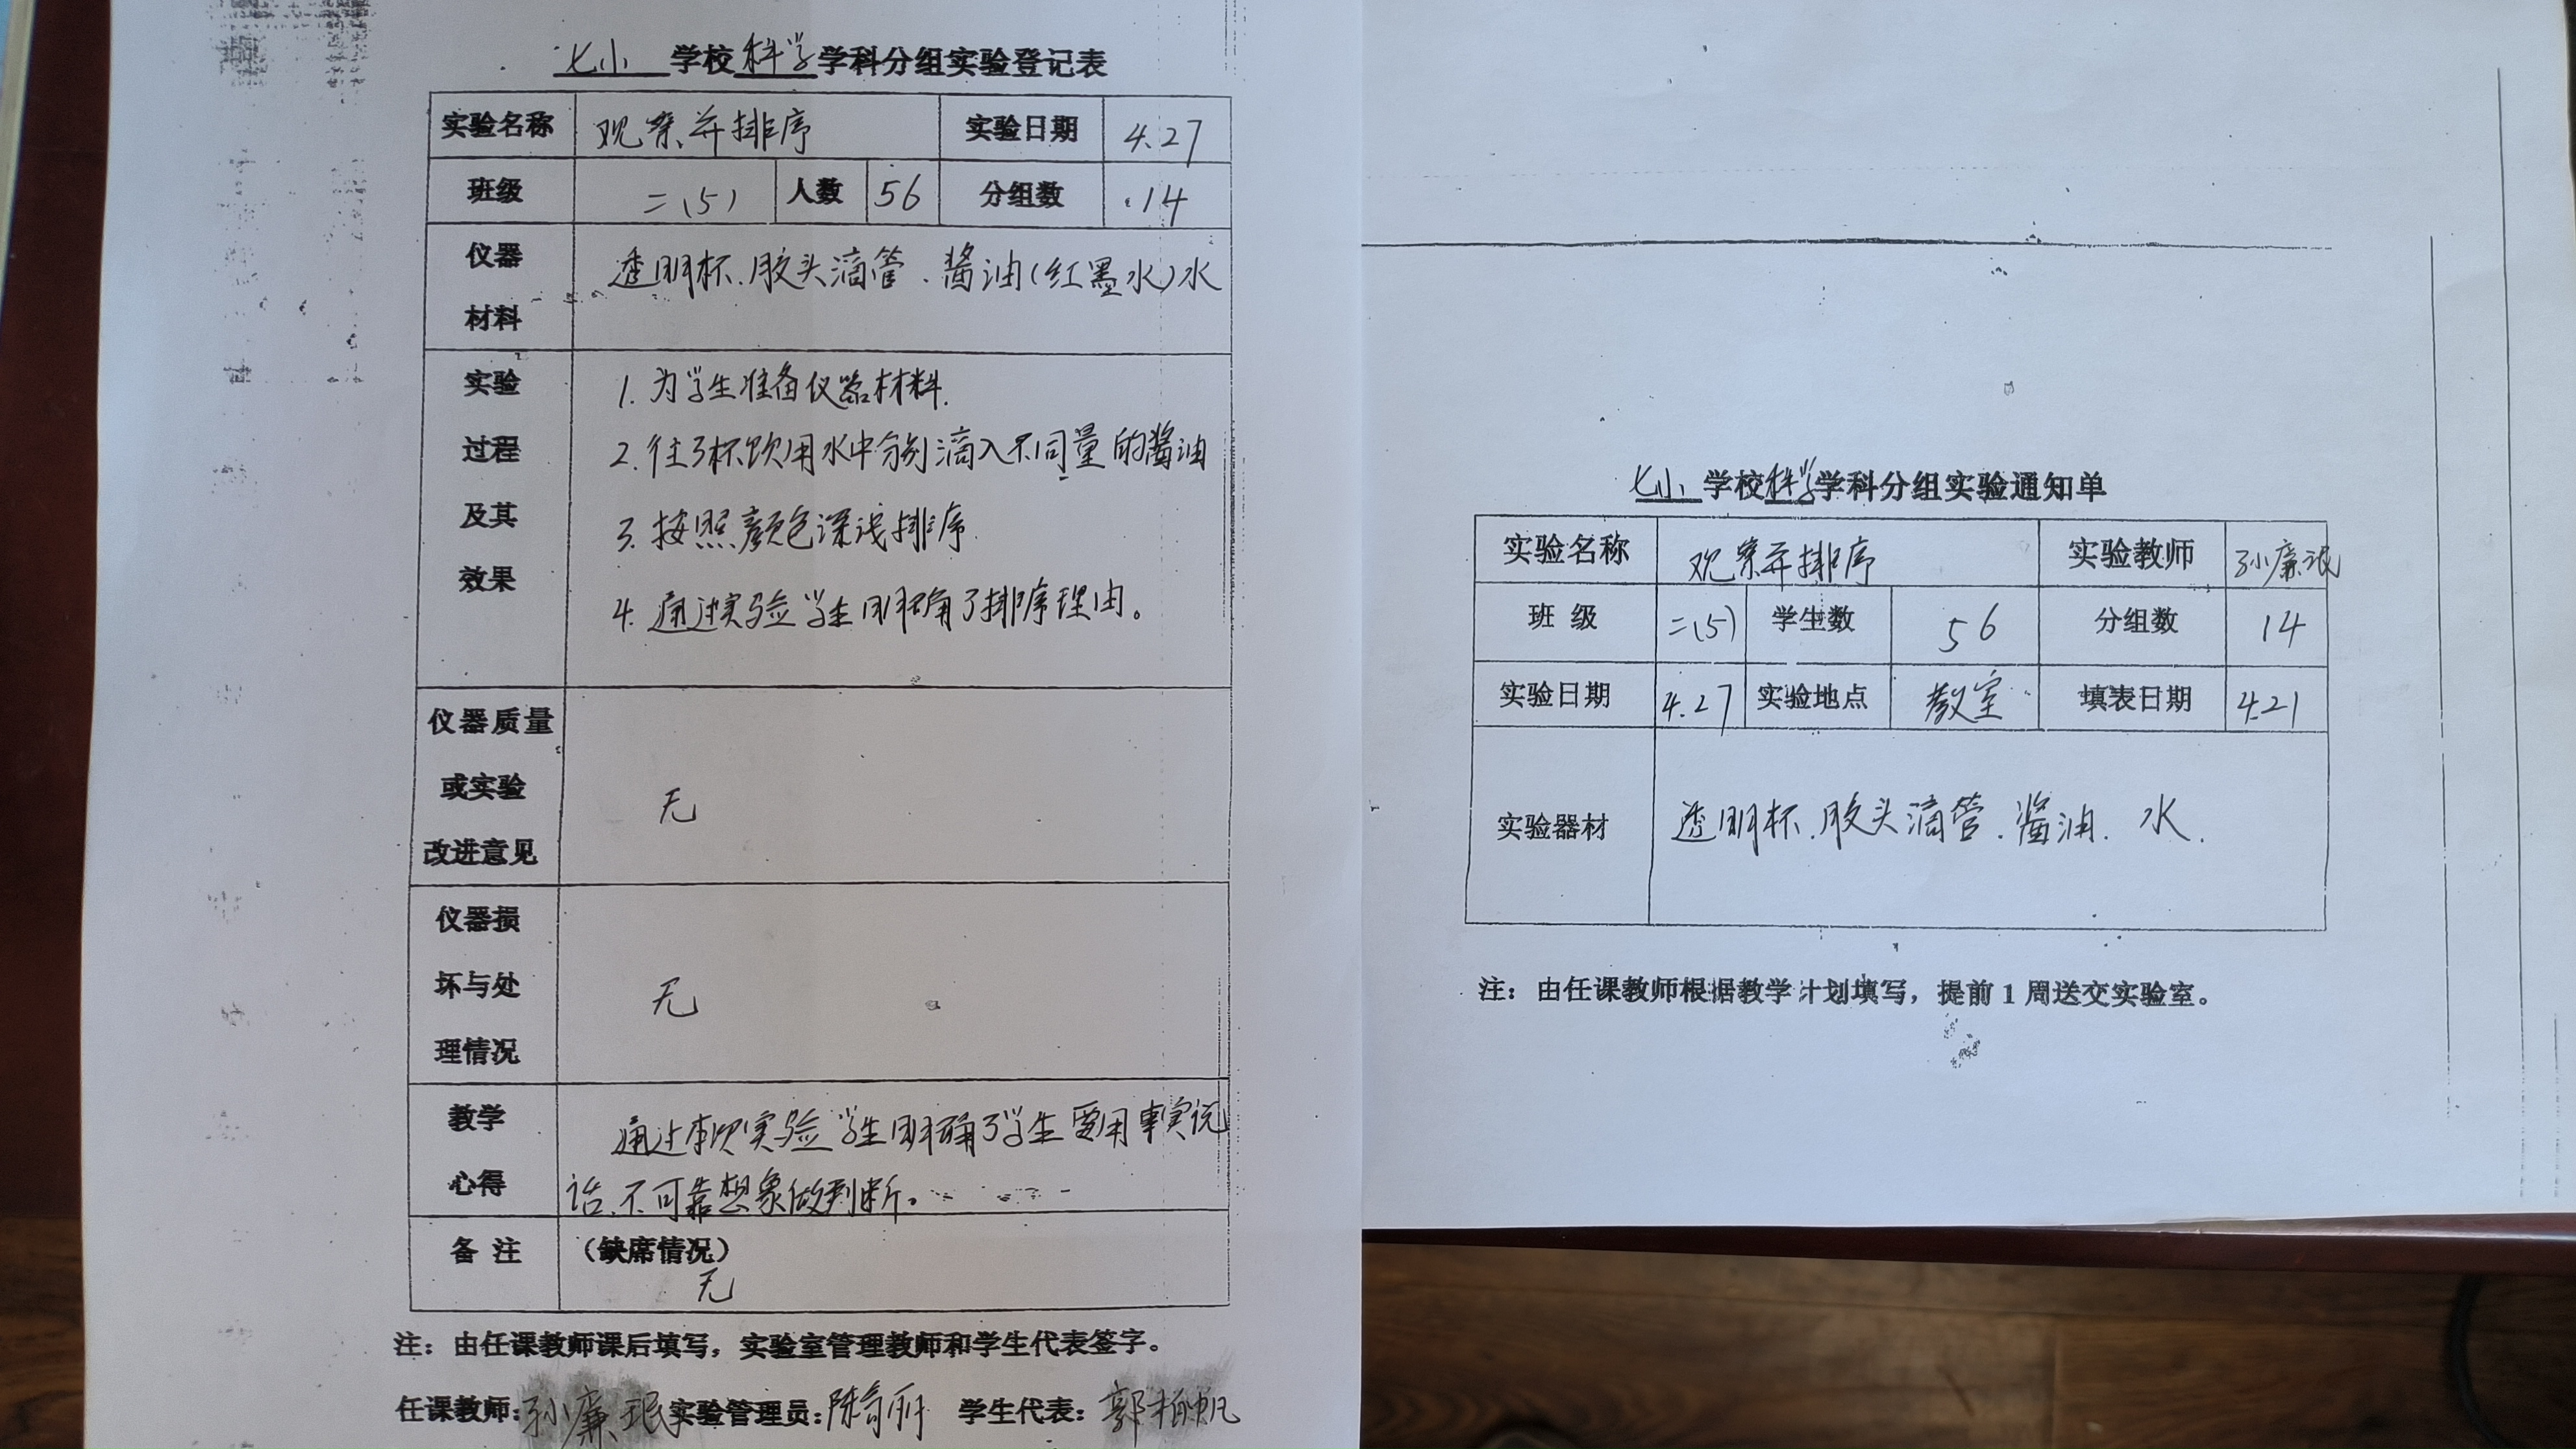 七小 学校 科学 学科分组实验登记表
实验名称 观察并排序 实验日期 4.27
班级 二(5) 人数 56 分组数 14
仪器 材料 透明杯、胶头滴管、酱油(红墨水)水
实验 过程 及其 效果
1. 为学生准备仪器材料.
2. 往3杯饮用水中分别滴入不同量的酱油
3. 按照颜色深浅排序
4. 通过实验学生明确了排序理由。
仪器质量 或实验 改进意见 无
仪器损 坏与处 理情况 无
教学 心得 通过本次实验学生明确了学生要用事实说
话、不可靠想象做判断。
备 注 (缺席情况)
无
注：由任课教师课后填写，实验室管理教师和学生代表签字。
任课教师：孙廉珉 实验管理员：陈 学生代表：郭柏帆
七小 学校 科学 学科分组实验通知单
实验名称 观察并排序 实验教师 孙廉珉
班 级 二(5) 学生数 56 分组数 14
实验日期 4.27 实验地点 教室 填表日期 4.21
实验器材 透明杯、胶头滴管、酱油、水.
注：由任课教师根据教学计划填写，提前1周送交实验室。